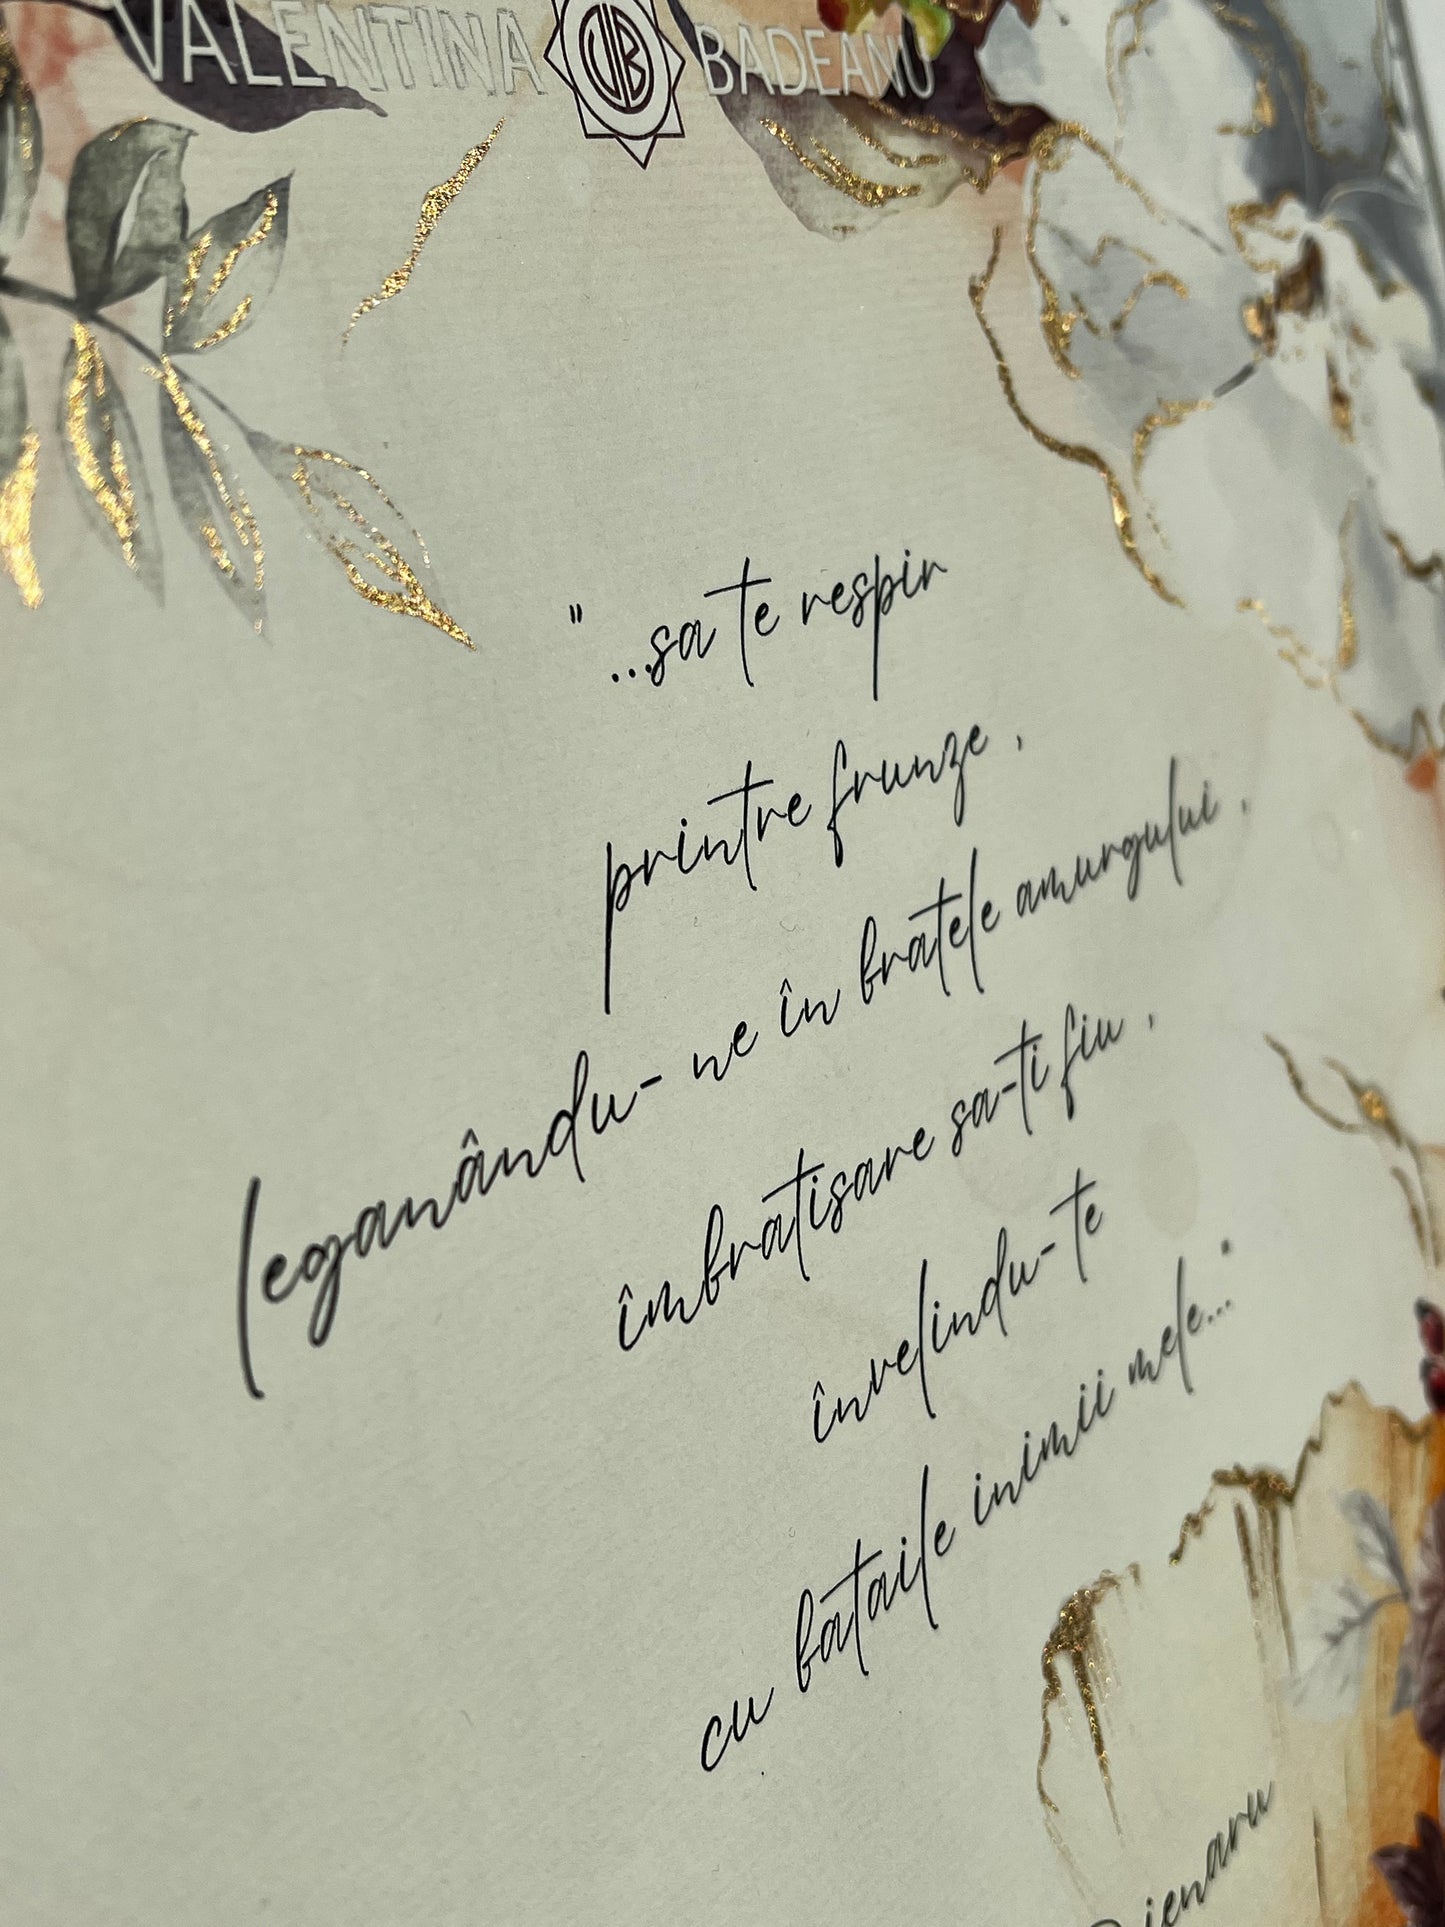 VALENTINA VB BADEANU
"...sa te respir
printre frunze ,
leganându- ne în bratele amurgului ,
îmbratisare sa-ti fiu ,
învelindu-te
cu bataile inimii mele..."